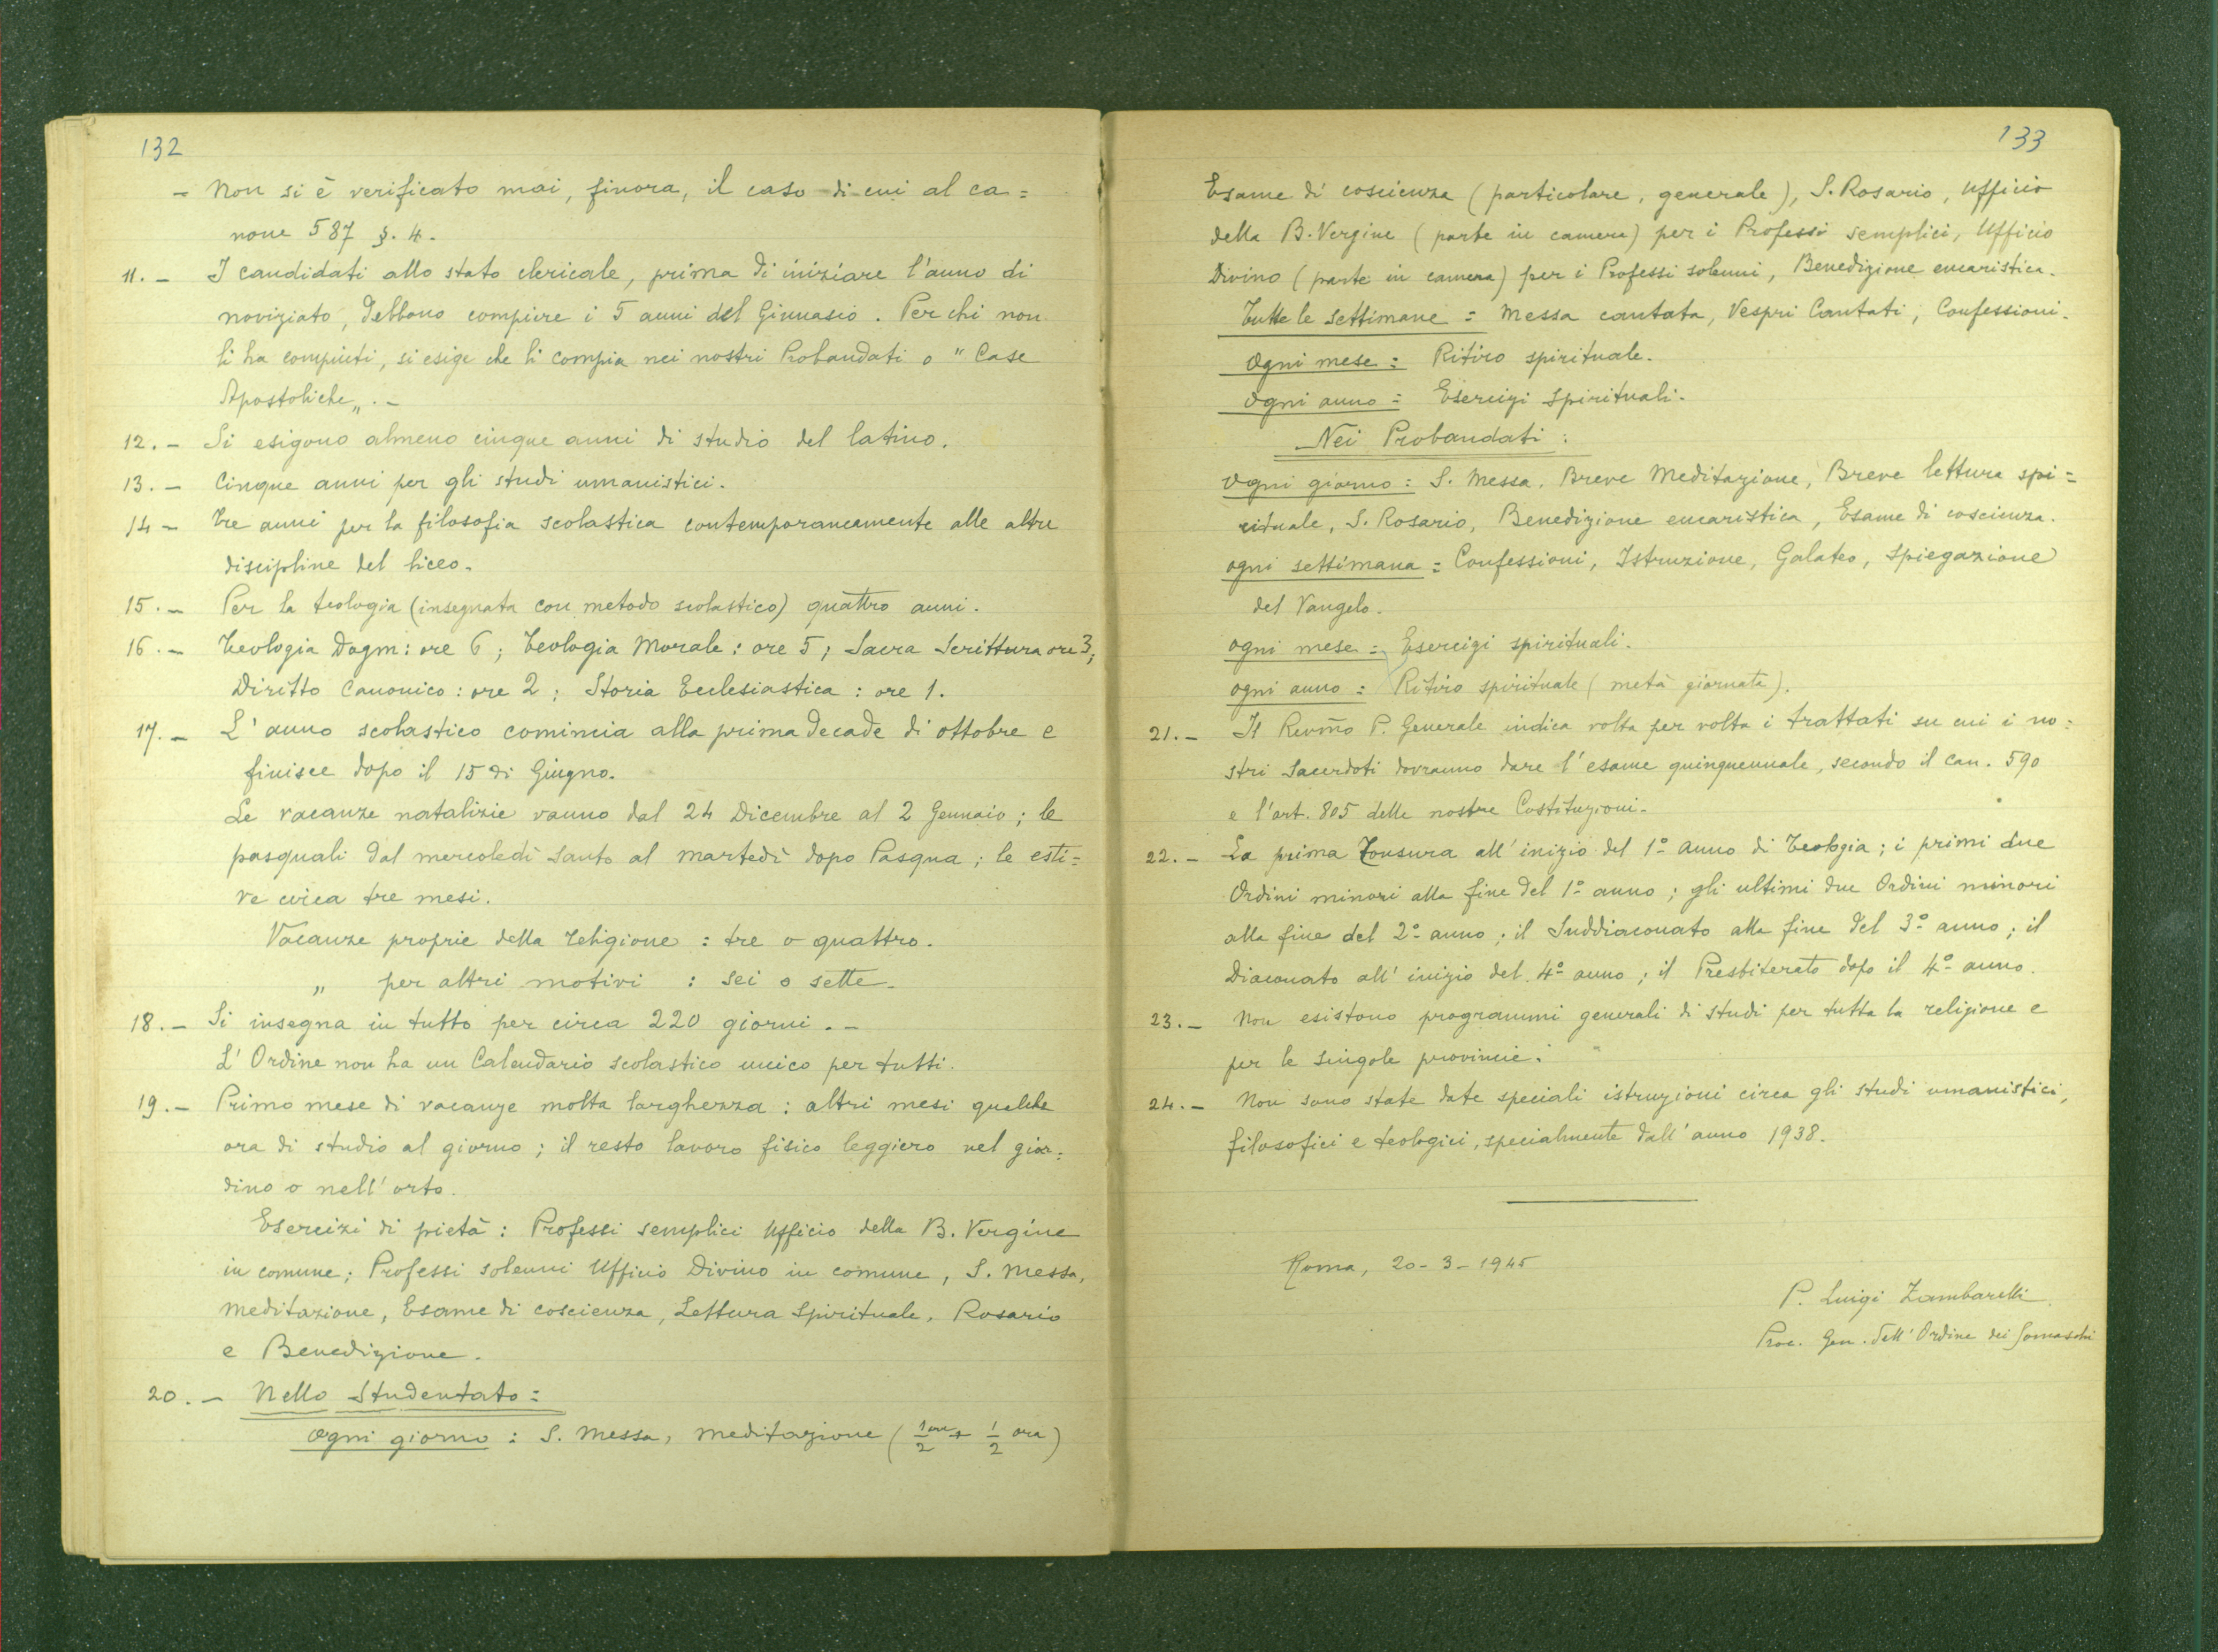 132
- Non si è verificato mai, finora, il caso di cui al ca=
none 587 §. 4.
11. - I candidati allo stato clericale, prima di iniziare l'anno di
noviziato, debbono compiere i 5 anni del Ginnasio. Per chi non
li ha compiuti, si esige che li compia nei nostri Probandati o "Case
Apostoliche„. -
12. - Si esigono almeno cinque anni di studio del latino.
13. - Cinque anni per gli studi umanistici.
14 - Tre anni per la filosofia scolastica contemporaneamente alle altre
discipline del liceo.
15. - Per la teologia (insegnata con metodo scolastico) quattro anni.
16. - Teologia Dogm: ore 6; Teologia Morale: ore 5; Sacra Scrittura ore 3;
Diritto Canonico: ore 2; Storia Ecclesiastica: ore 1.
17. - L'anno scolastico comincia alla prima decade di ottobre e
finisce dopo il 15 di Giugno.
Le vacanze natalizie vanno dal 24 Dicembre al 2 Gennaio; le
pasquali dal mercoledì Santo al martedì dopo Pasqua; le esti=
ve circa tre mesi.
Vacanze proprie della religione: tre o quattro.
„ per altri motivi: sei o sette.
18. - Si insegna in tutto per circa 220 giorni. -
L'Ordine non ha un Calendario scolastico unico per tutti.
19. - Primo mese di vacanze molta larghezza: altri mesi qualche
ora di studio al giorno; il resto lavoro fisico leggiero nel giar=
dino o nell'orto.
Esercizi di pietà: Professi semplici Ufficio della B. Vergine
in comune; Professi solenni Ufficio Divino in comune, S. Messa,
meditazione, Esame di coscienza, Lettura Spirituale, Rosario
e Benedizione.
20. - Nello Studentato=
Ogni giorno: S. Messa, meditazione (1/2 ora + 1/2 ora)
133
Esame di coscienza (particolare, generale), S. Rosario, Ufficio
della B. Vergine (parte in camera) per i Professi semplici, Ufficio
Divino (parte in camera) per i Professi solenni, Benedizione eucaristica.
Tutte le settimane = Messa cantata, Vespri Cantati, Confessioni.
Ogni mese = Ritiro spirituale.
Ogni anno = Esercizi Spirituali.
Nei Probandati:
Ogni giorno: S. Messa. Breve Meditazione, Breve lettura spi=
rituale, S. Rosario, Benedizione eucaristica, Esame di coscienza.
ogni settimana = Confessioni, Istruzione, Galateo, Spiegazione
del Vangelo.
ogni mese = Esercizi spirituali.
ogni anno = Ritiro spirituale (metà giornata).
21. - Il Revm̃o P. Generale indica volta per volta i trattati su cui i no=
stri Sacerdoti dovranno dare l'esame quinquennale, secondo il can. 590
e l'art. 805 delle nostre Costituzioni.
22. - La prima Tonsura all'inizio del 1º anno di Teologia; i primi due
Ordini minori alla fine del 1º anno; gli ultimi due Ordini minori
alla fine del 2º anno; il Suddiaconato alla fine del 3º anno; il
Diaconato all'inizio del 4º anno; il Presbiterato dopo il 4º anno.
23. - Non esistono programmi generali di studi per tutta la religione e
per le singole provincie.
24. - Non sono state date speciali istruzioni circa gli studi umanistici,
filosofici e teologici, specialmente dall'anno 1938.
Roma, 20-3-1945
P. Luigi Zambarelli
Proc. Gen. dell'Ordine dei Somaschi